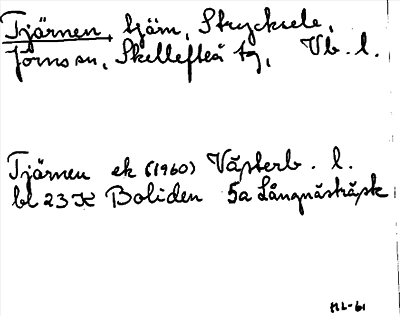 Tjärnen, tjärn, Strycksele,
Jörns sn, Skellefteå tg, Vb. l.
Tjärnen ek (1960) Västerb. l.
bl 23 K Boliden 5a Långnästräsk
ML-61